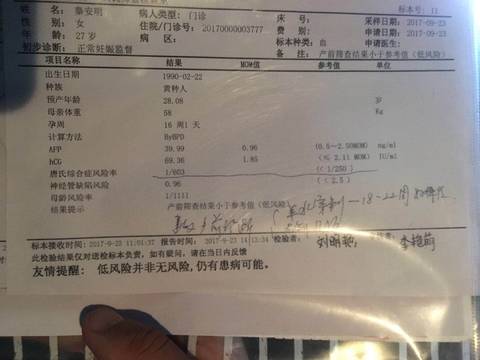 姓 名: 秦安明 病人类型: 门诊 床 号: 标本号: 11
性 别: 女 住院/门诊号: 20170000003777 费 别: 采样日期: 2017-09-23
年 龄: 27 岁 病 区: 标本种类: 血 申请日期: 2017-09-23
初步诊断: 正常妊娠监督 备 注: 产前筛查结果小于参考值(低风险) 申请医生:
项目名称 结果 MOM值 参考值 单位
出生日期 1990-02-22
种族 黄种人
预产年龄 28.08 岁
母亲体重 58 Kg
孕周 16 周1 天
计算方法 ByBPD
AFP 39.99 0.96 (0.5~2.50MOM) ng/ml
hCG 69.36 1.85 (≤ 2.11 MOM) IU/ml
唐氏综合征风险率 1/603 (< 1/250 )
神经管缺陷风险 0.96 (< 2.5 )
母龄风险率 1/1111
结果提示 产前筛查结果小于参考值(低风险)
羊水穿刺—18-22周
标本接收时间: 2017-9-23 11:01:37 报告时间: 2017-9-23 14:13:34 检验者:
此检验结果仅对送检标本负责, 如有疑问, 请在当日内反馈
友情提醒: 低风险并非无风险,仍有患病可能。